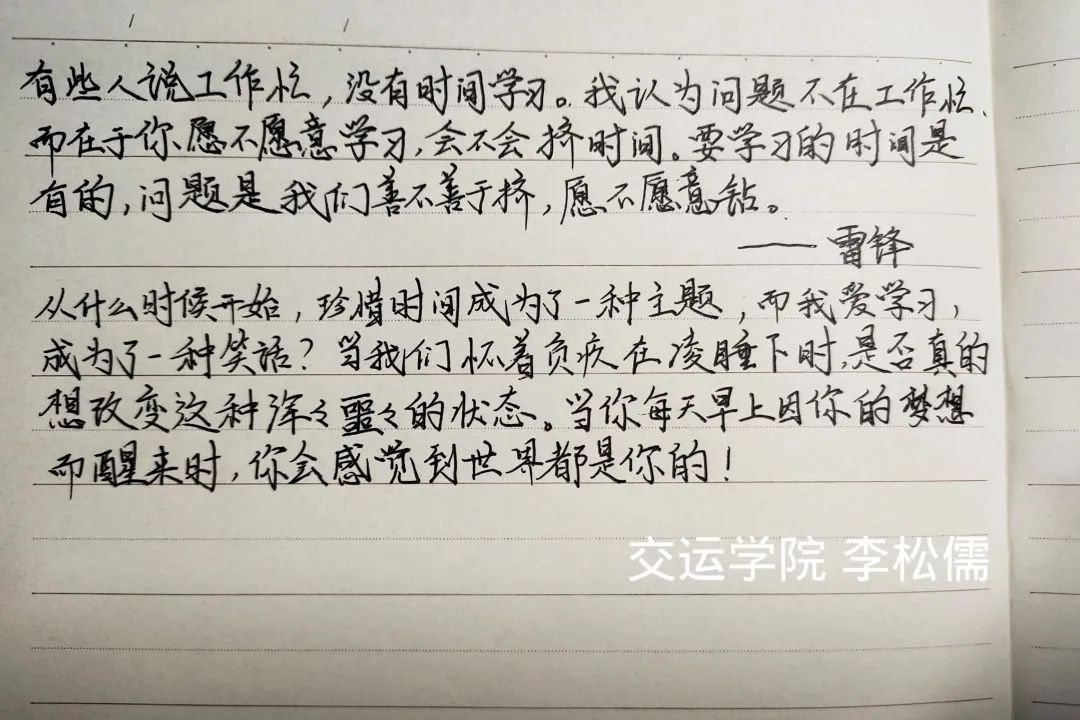 有些人说工作忙，没有时间学习。我认为问题不在工作忙、
而在于你愿不愿意学习，会不会挤时间。要学习的时间是
有的，问题是我们善不善于挤，愿不愿意钻。
——雷锋
从什么时候开始，珍惜时间成为了一种主题，而我爱学习，
成为了一种笑话？当我们怀着负疚在凌睡下时，是否真的
想改变这种浑々噩々的状态。当你每天早上因你的梦想
而醒来时，你会感觉到世界都是你的！
交运学院 李松儒